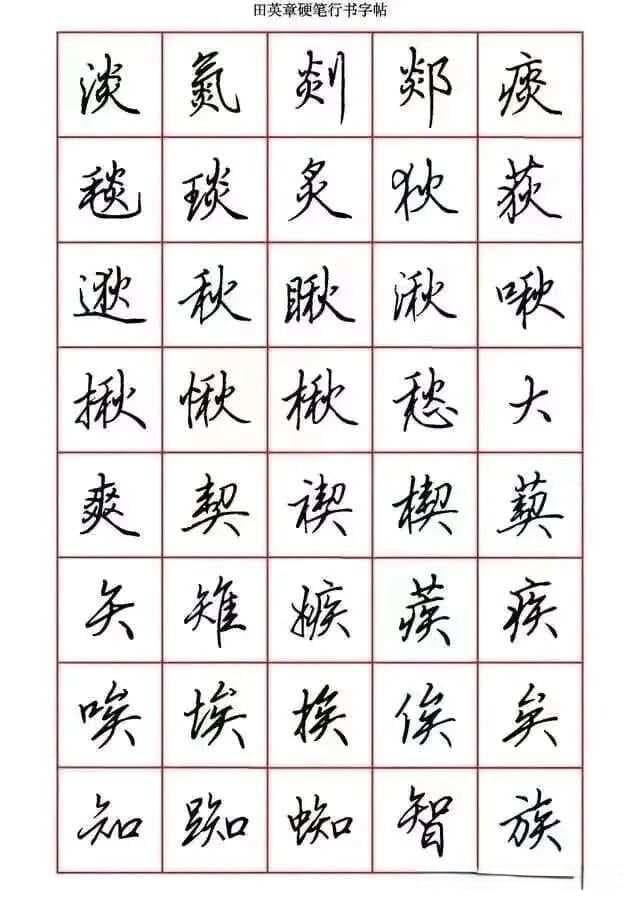 田英章硬笔行书字帖
淡 氮 剡 郯 痰
毯 琰 炙 狄 荻
逖 秋 瞅 湫 啾
揪 愀 楸 愁 大
爽 契 禊 楔 葜
矢 雉 嫉 蒺 疾
唉 埃 挨 俟 矣
知 踟 蜘 智 族